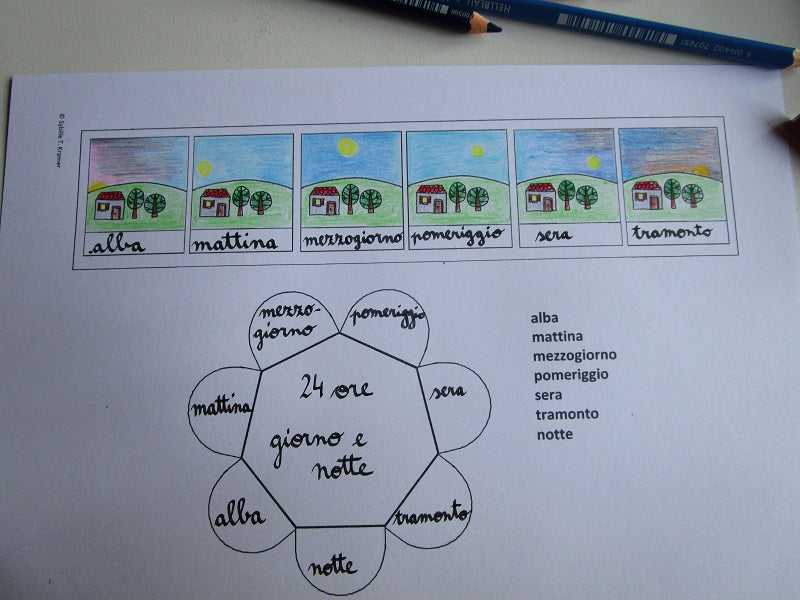 HELLBLAU
9 016400 707651
© Sybille T. Kramer
alba
mattina
mezzogiorno
pomeriggio
sera
tramonto
mezzo-
giorno
pomeriggio
mattina
sera
24 ore
giorno e
notte
alba
tramonto
notte
alba
mattina
mezzogiorno
pomeriggio
sera
tramonto
notte